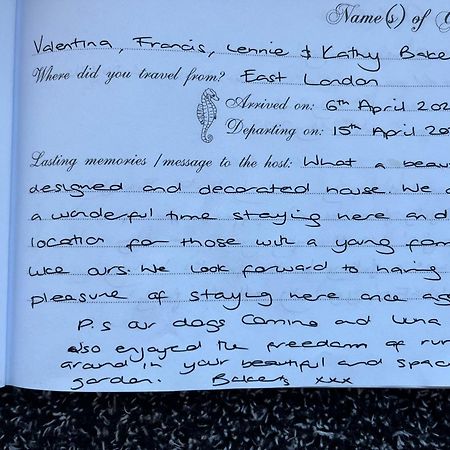 Name(s) of
Valentina, Francis, Lennie & Kathy Bake
Where did you travel from? East London
Arrived on: 6th April 202
Departing on: 15th April 20
Lasting memories / message to the host: What a beau
designed and decorated house. We
a wonderful time staying here an
location for those with a young fam
like ours. We look forward to having
pleasure of staying here once ag
P.S our dogs Camino and Luna
also enjoyed the freedom of run
around in your beautiful and spac
garden. Bakers xxx